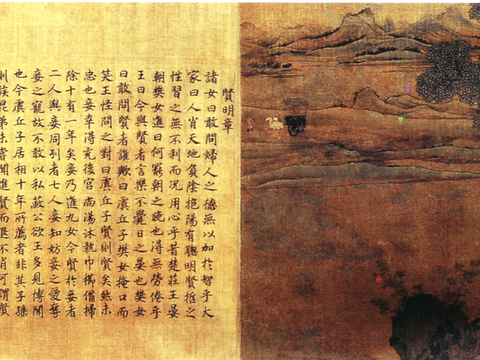 賢明章
諸女曰敢問婦人之德無以加於智乎大
家曰人肖天地負陰抱陽有聰明賢哲之
性習之無不利而況用心乎昔楚莊王晏
朝樊女進曰何罷朝之晚也得無勞倦乎
王曰今與賢者言樂不覺日之晏也樊女
曰敢問賢者誰歟曰虞丘子樊女掩口而
笑王怪問之對曰虞丘子賢則賢矣然未
忠也妾幸得充後宮尚湯沐執巾櫛備掃
除十有一年矣妾乃進九女今賢於妾者
二人與妾同列者七人妾知妨妾之愛奪
妾之寵故不敢以私蔽公欲王多見博聞
也今虞丘子居相十年所薦者非其子孫
則族昆弟未嘗聞進賢而退不肖可謂賢